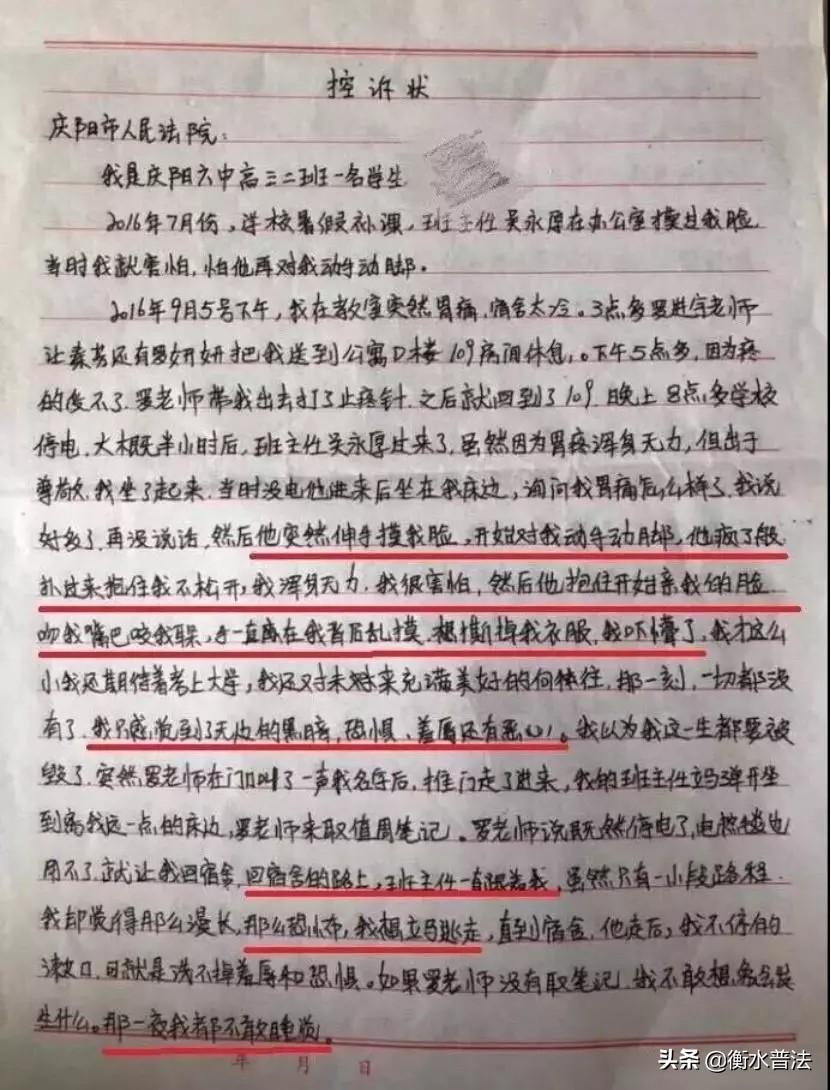 控诉状
庆阳市人民法院:
我是庆阳六中高三二班一名学生
2016年7月份，学校暑假补课，班主任吴永厚在办公室摸过我脸
当时我就害怕，怕他再对我动手动脚。
2016年9月5号下午，我在教室突然胃痛，宿舍太冷。3点多罗进宇老师
让秦芳还有罗妍妍把我送到公寓D楼109房间休息，。下午5点多，因为疼
的受不了，罗老师带我出去打了止疼针，之后就回到了109，晚上8点多学校
停电，大概半小时后，班主任吴永厚过来了，虽然因为胃疼浑身无力，但出于
尊敬，我坐了起来，当时没电他进来后坐在我床边，询问我胃痛怎么样了，我说
好多了，再没说话，然后他突然伸手摸我脸，开始对我动手动脚，他疯了般
扑过来抱住我不松开，我浑身无力，我很害怕，然后他抱住开始亲我的脸
吻我嘴巴咬我耳朵，手一直在我背后乱摸，想撕掉我衣服，我吓懵了，我才这么
小我还期待着考上大学，我还对未来充满美好的向往，那一刻，一切都没
有了，我只感觉到了无边的黑暗，恐惧、羞辱还有恶心！。我以为我这一生都要被
毁了，突然罗老师在门口叫了一声我名字后，推门走了进来，我的班主任立马弹开坐
到离我远一点的床边，罗老师来取值周笔记。罗老师说既然停电了，电热毯也
用不了，就让我回宿舍，回宿舍的路上，班主任一直跟着我，虽然只有一小段路程
我却觉得那么漫长，那么恐怖，我想立马逃走，直到宿舍，他走后，我不停的
漱口，可就是洗不掉羞辱和恐惧。如果罗老师没有取笔记，我不敢想象会发
生什么。那一夜我都不敢睡觉。
年 月 日
头条 @衡水普法